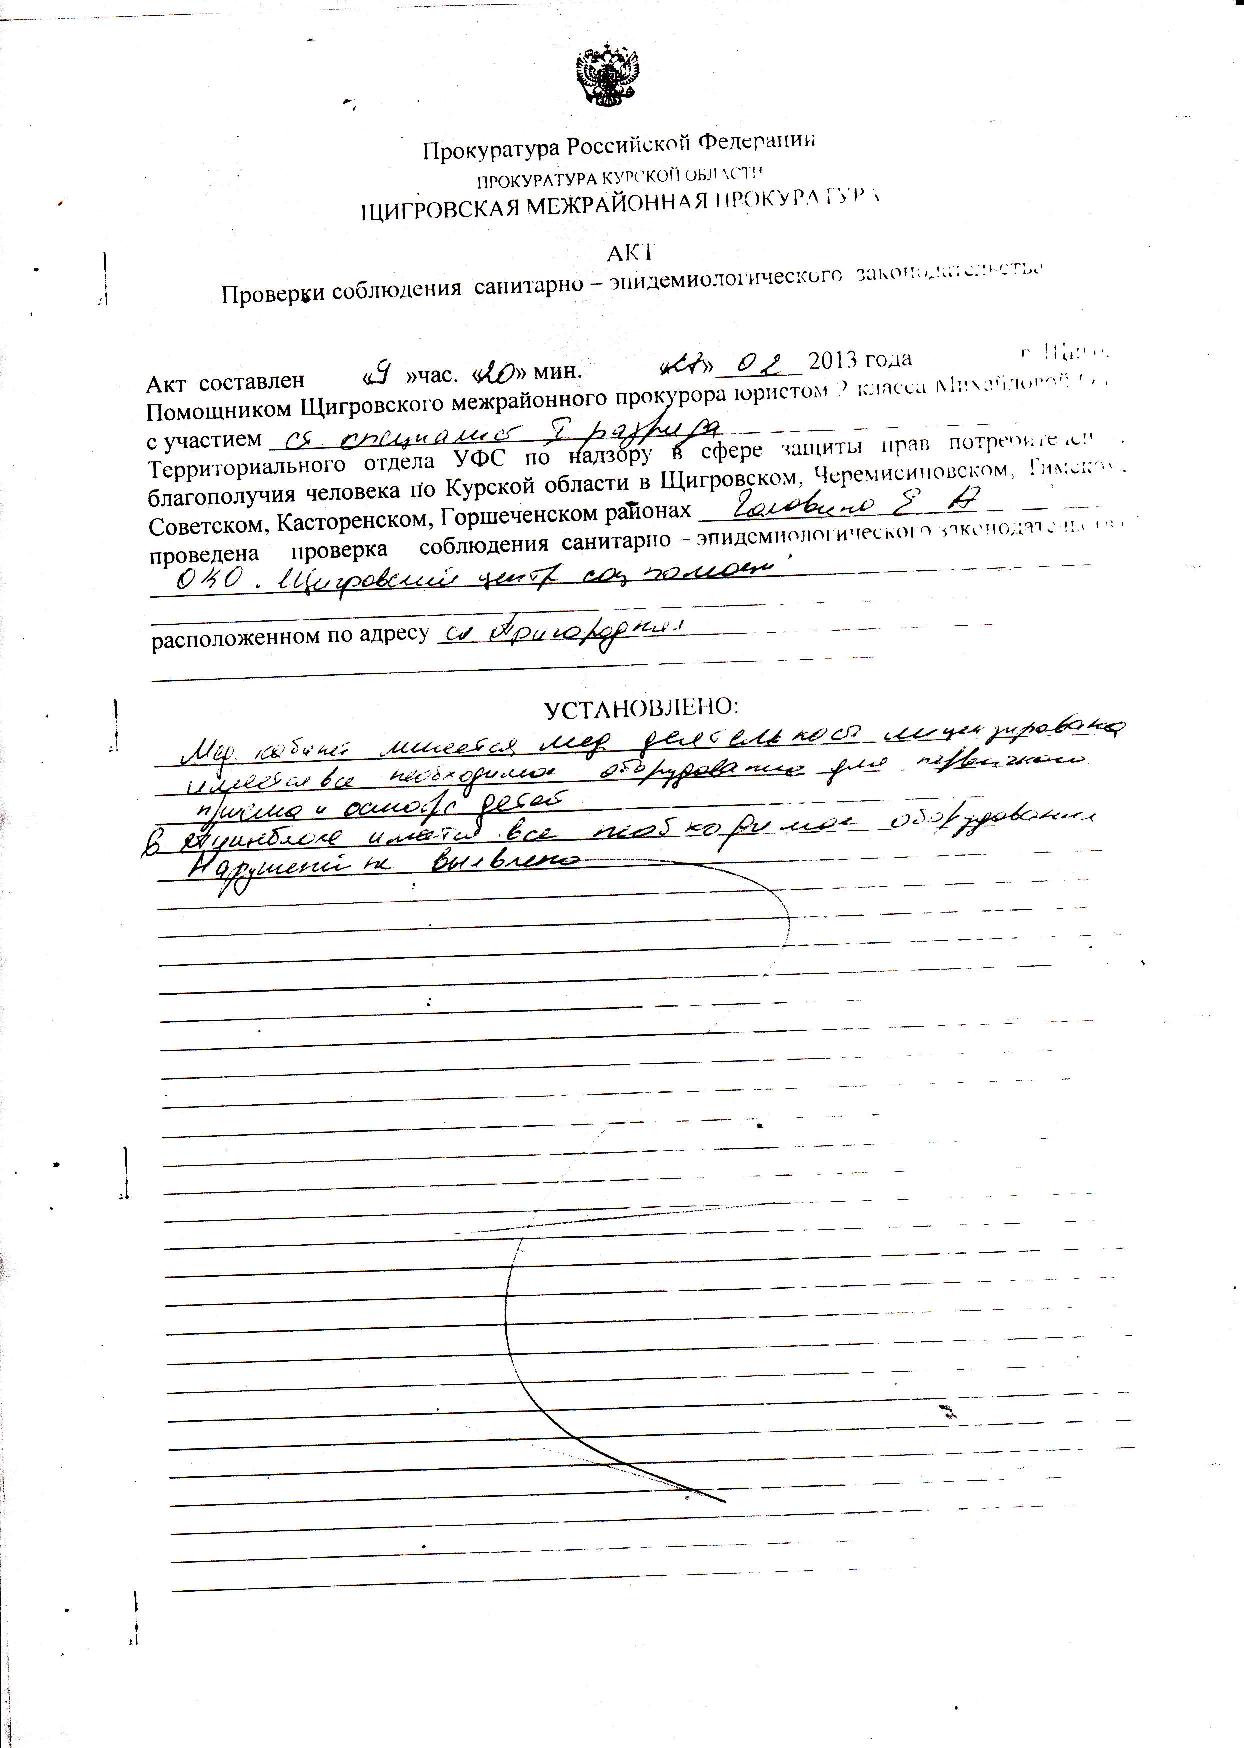 Прокуратура Российской Федерации
ПРОКУРАТУРА КУРСКОЙ ОБЛАСТИ
ЩИГРОВСКАЯ МЕЖРАЙОННАЯ ПРОКУРАТУРА
АКТ
Проверки соблюдения санитарно – эпидемиологического законодательства
Акт составлен «9 »час. «20» мин. 02 2013 года
Помощником Щигровского межрайонного прокурора юристом 2 класса Михайловой
с участием специалист I разряда
Территориального отдела УФС по надзору в сфере защиты прав потребителей
благополучия человека по Курской области в Щигровском, Черемисиновском, Тимском,
Советском, Касторенском, Горшеченском районах Головино Е А
проведена проверка соблюдения санитарно – эпидемиологического законодательства
ОКО . Щигровский центр соц помощи
расположенном по адресу сл Пригородняя
УСТАНОВЛЕНО:
Мед. кабинет имеется мед деятельность лицензирована
имеется все необходимое оборудование для первичного
приема и осмотра детей
В пищеблоке имеется все необходимое оборудование
Нарушений не выявлено